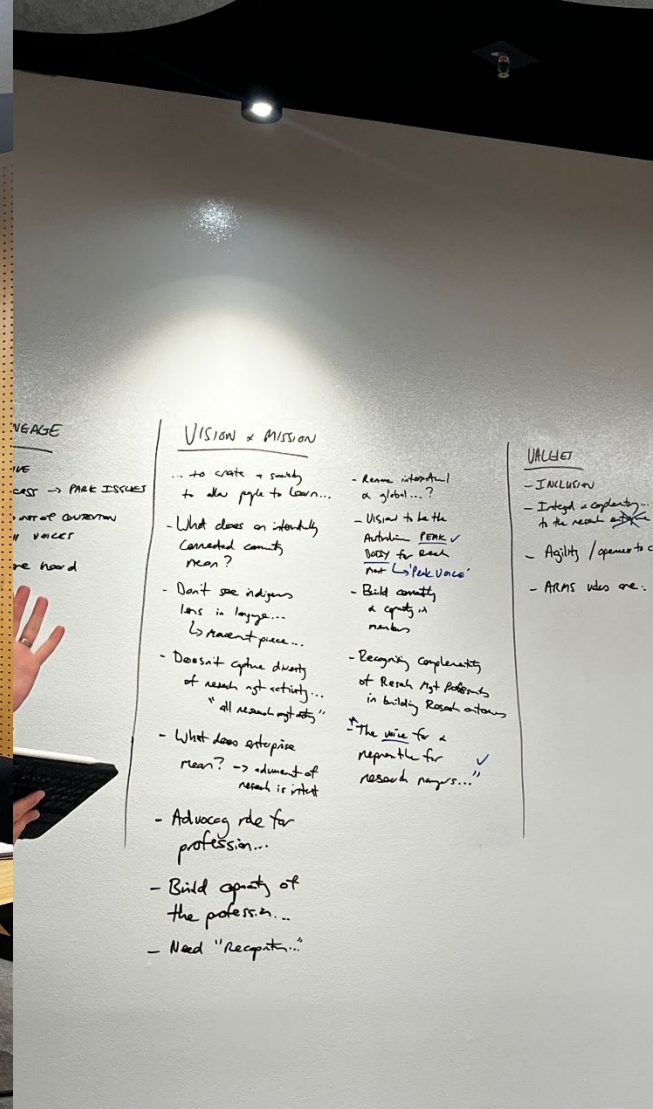 NGAGE
IVE
→ PARK ISSUES
VOICES
re heard
VISION & MISSION
... to create a society
to allow people to learn...
- What does an
connected community
mean?
- Don't see indigenous
lens in language...
↳ piece...
- Doesn't capture diversity
of research mgt activity...
"all research mgt activity"
- What does enterprise
mean? -> of
research is intent
- Advocacy role for
profession...
- Build capacity of
the profession...
- Need "Recognition..."
- international
& global...?
- Vision to be the
Australian PEAK ✓
BODY for Research
Mgt ↳ 'Peak Voice'
- Build community
& capacity in
members
- Recognising complementarity
of Research Mgt Professionals
in building Research outcomes
- "The voice for &
for
research managers..." ✓
VALUES
- INCLUSION
- Integral & complementary...
to the research
- Agility / openness to c
- ARMS values are: